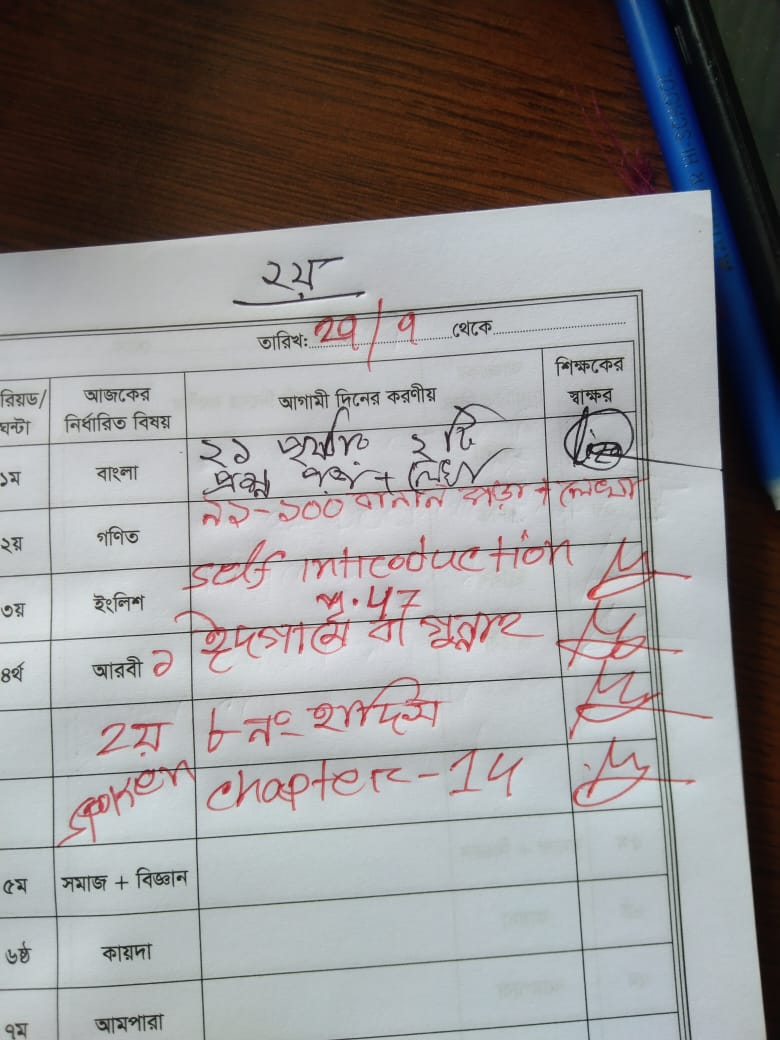 ২য়
তারিখ: ২৭/৭ থেকে
রিয়ড/ আজকের আগামী দিনের করণীয় শিক্ষকের
ঘন্টা নির্ধারিত বিষয় স্বাক্ষর
১ম বাংলা ২১ পৃষ্ঠার ২ টি
প্রশ্ন পড়া + লিখা
২য় গণিত ৯১-১০০ বানান পড়া + লেখা
৩য় ইংলিশ self introduction
p. 47
৪র্থ আরবী ১ ইদগামে বা গুন্নাহ
২য় ৮ নং হাদিস
spoken chapter-14
৫ম সমাজ + বিজ্ঞান
৬ষ্ঠ কায়দা
৭ম আমপারা